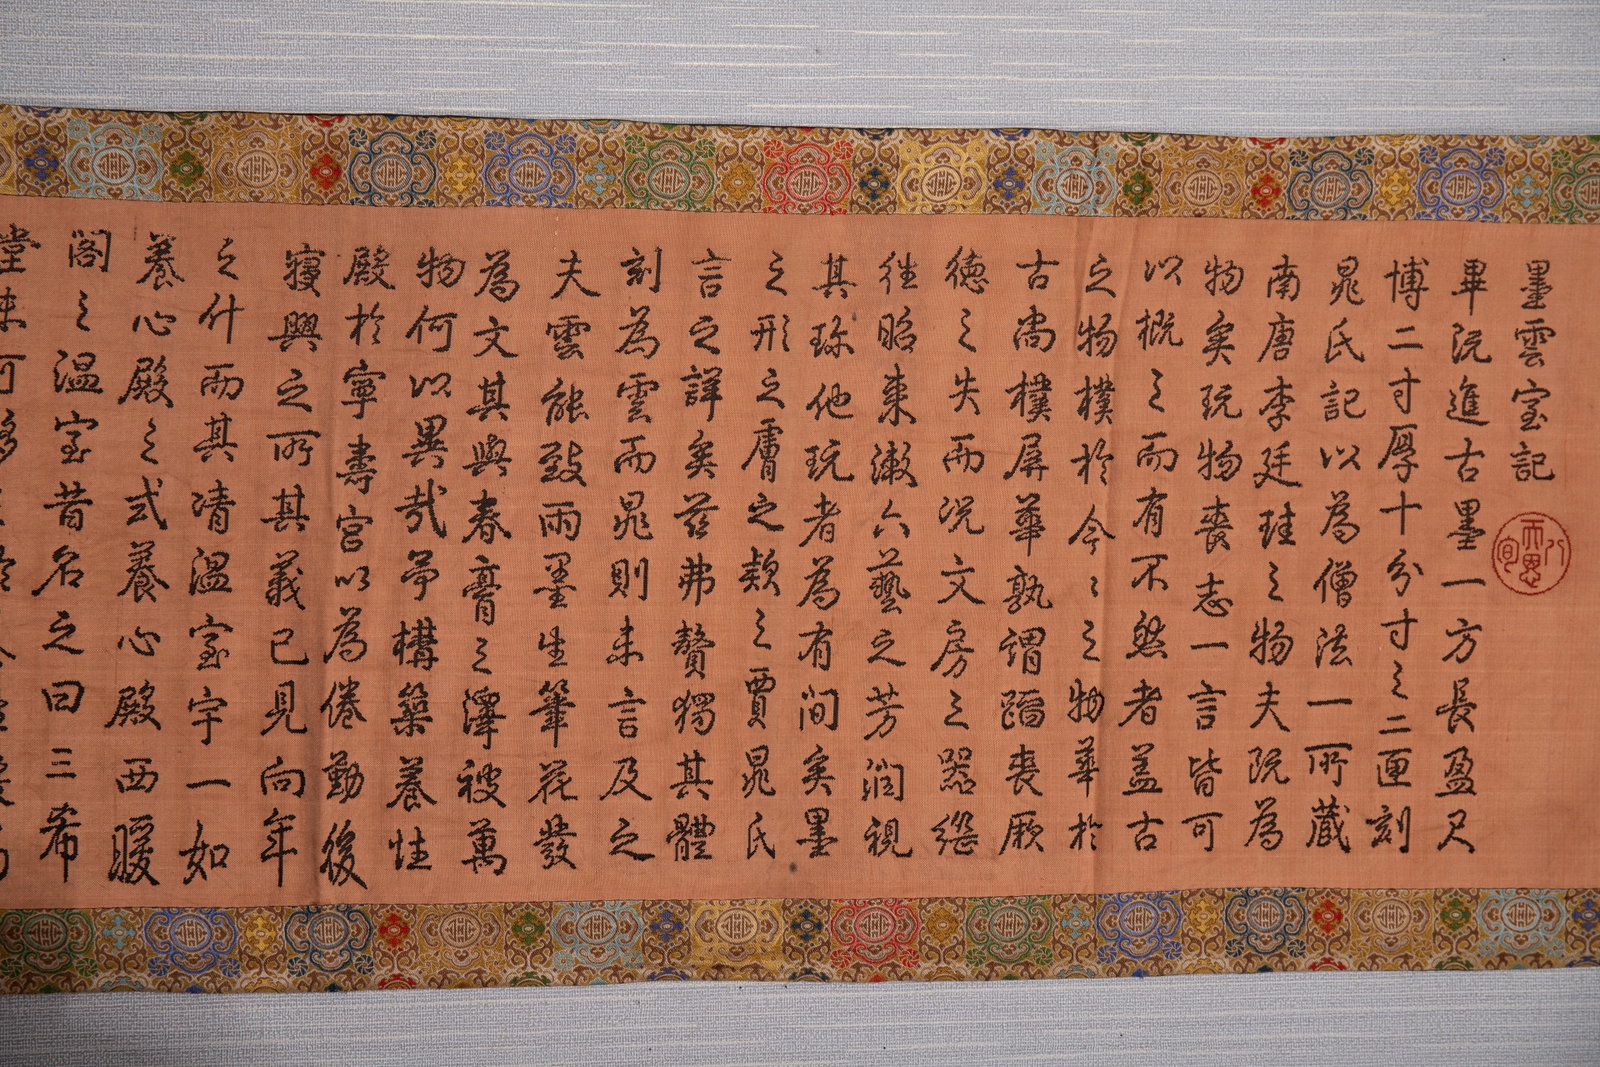 墨雲室記
八
天恩
旬
畢沅進古墨一方長盈尺
博二寸厚十分寸之二匣刻
晁氏記以為僧法一所藏
南唐李廷珪之物夫沅為
物矣玩物喪志一言皆可
以概之而有不然者盖古
之物樸於今之之物華於
古尚樸屏華孰謂蹈喪厥
德之失而況文房之器繼
往昭来漱六藝之芳潤視
其珎他玩者為有间矣墨
之形之膚之欵之賈晁氏
言之詳矣茲弗贅獨其體
刻為雲而晁則未言及之
夫雲能致雨墨生筆花發
為文其與春膏之澤被萬
物何以異哉爰構築養性
殿於寧壽宮以為倦勤後
寝興之所其義已見向年
之什而其凊温室宇一如
養心殿之式養心殿西暖
閣之温室昔名之曰三希
堂来可